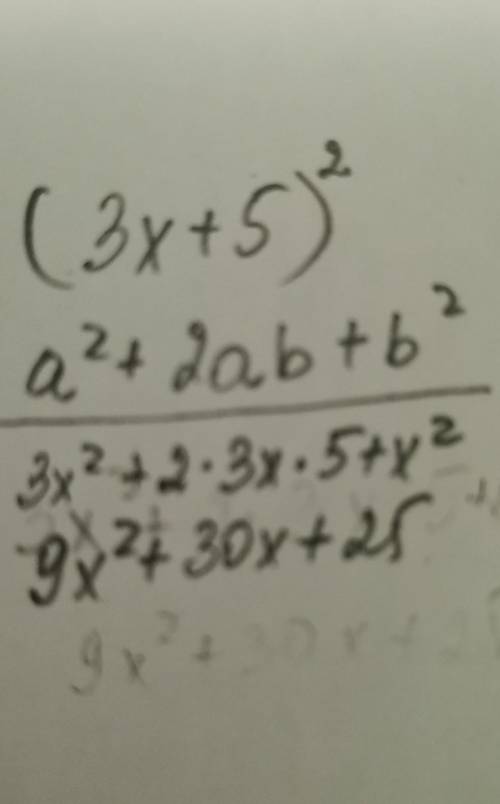 (3x+5)²
a²+2ab+b²
3x²+2·3x·5+x²
9x²+30x+25
9x²+30x+2